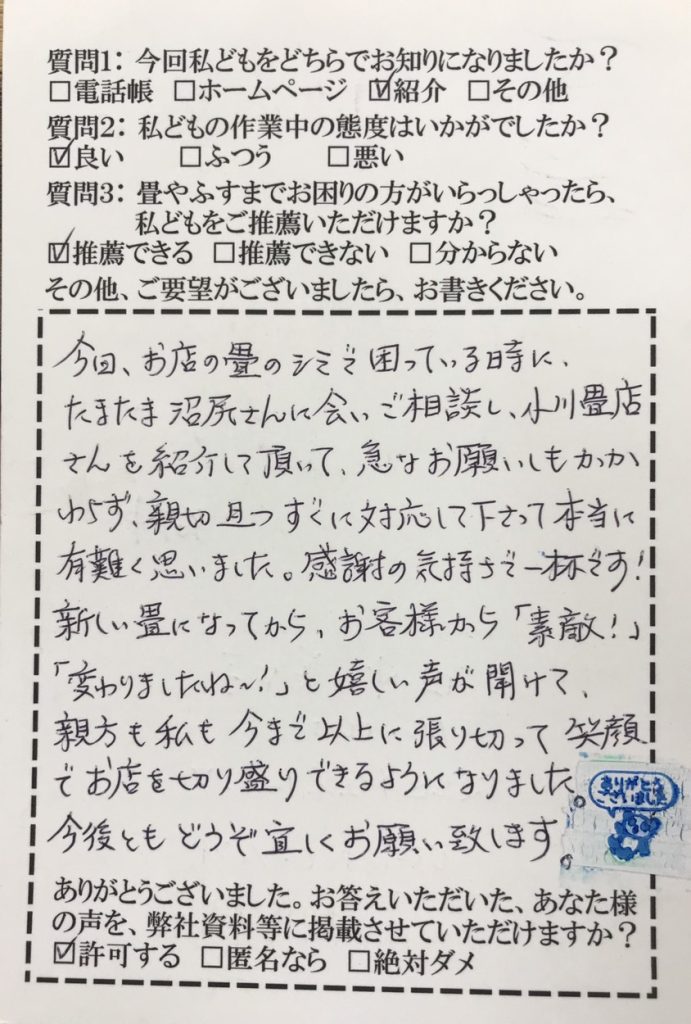 質問1: 今回私どもをどちらでお知りになりましたか？
□電話帳 □ホームページ ☑紹介 □その他
質問2: 私どもの作業中の態度はいかがでしたか？
☑良い □ふつう □悪い
質問3: 畳やふすまでお困りの方がいらっしゃったら、
私どもをご推薦いただけますか？
☑推薦できる □推薦できない □分からない
その他、ご要望がございましたら、お書きください。
今回、お店の畳のシミで困っている時に、
たまたま沼尻さんに会いご相談し、小川畳店
さんを紹介して頂いて、急なお願いしもかかか
わらず、親切且つすぐに対応して下さって本当に
有難く思いました。感謝の気持ちで一杯です！
新しい畳になってから、お客様から「素敵！」
「変わりましたね〜！」と嬉しい声が聞けて、
親方も私も今まで以上に張り切って笑顔
でお店を切り盛りできるようになりました。
今後ともどうぞ宜しくお願い致します。
ありがとうございました
ありがとうございました。お答えいただいた、あなた様
の声を、弊社資料等に掲載させていただけますか？
☑許可する □匿名なら □絶対ダメ